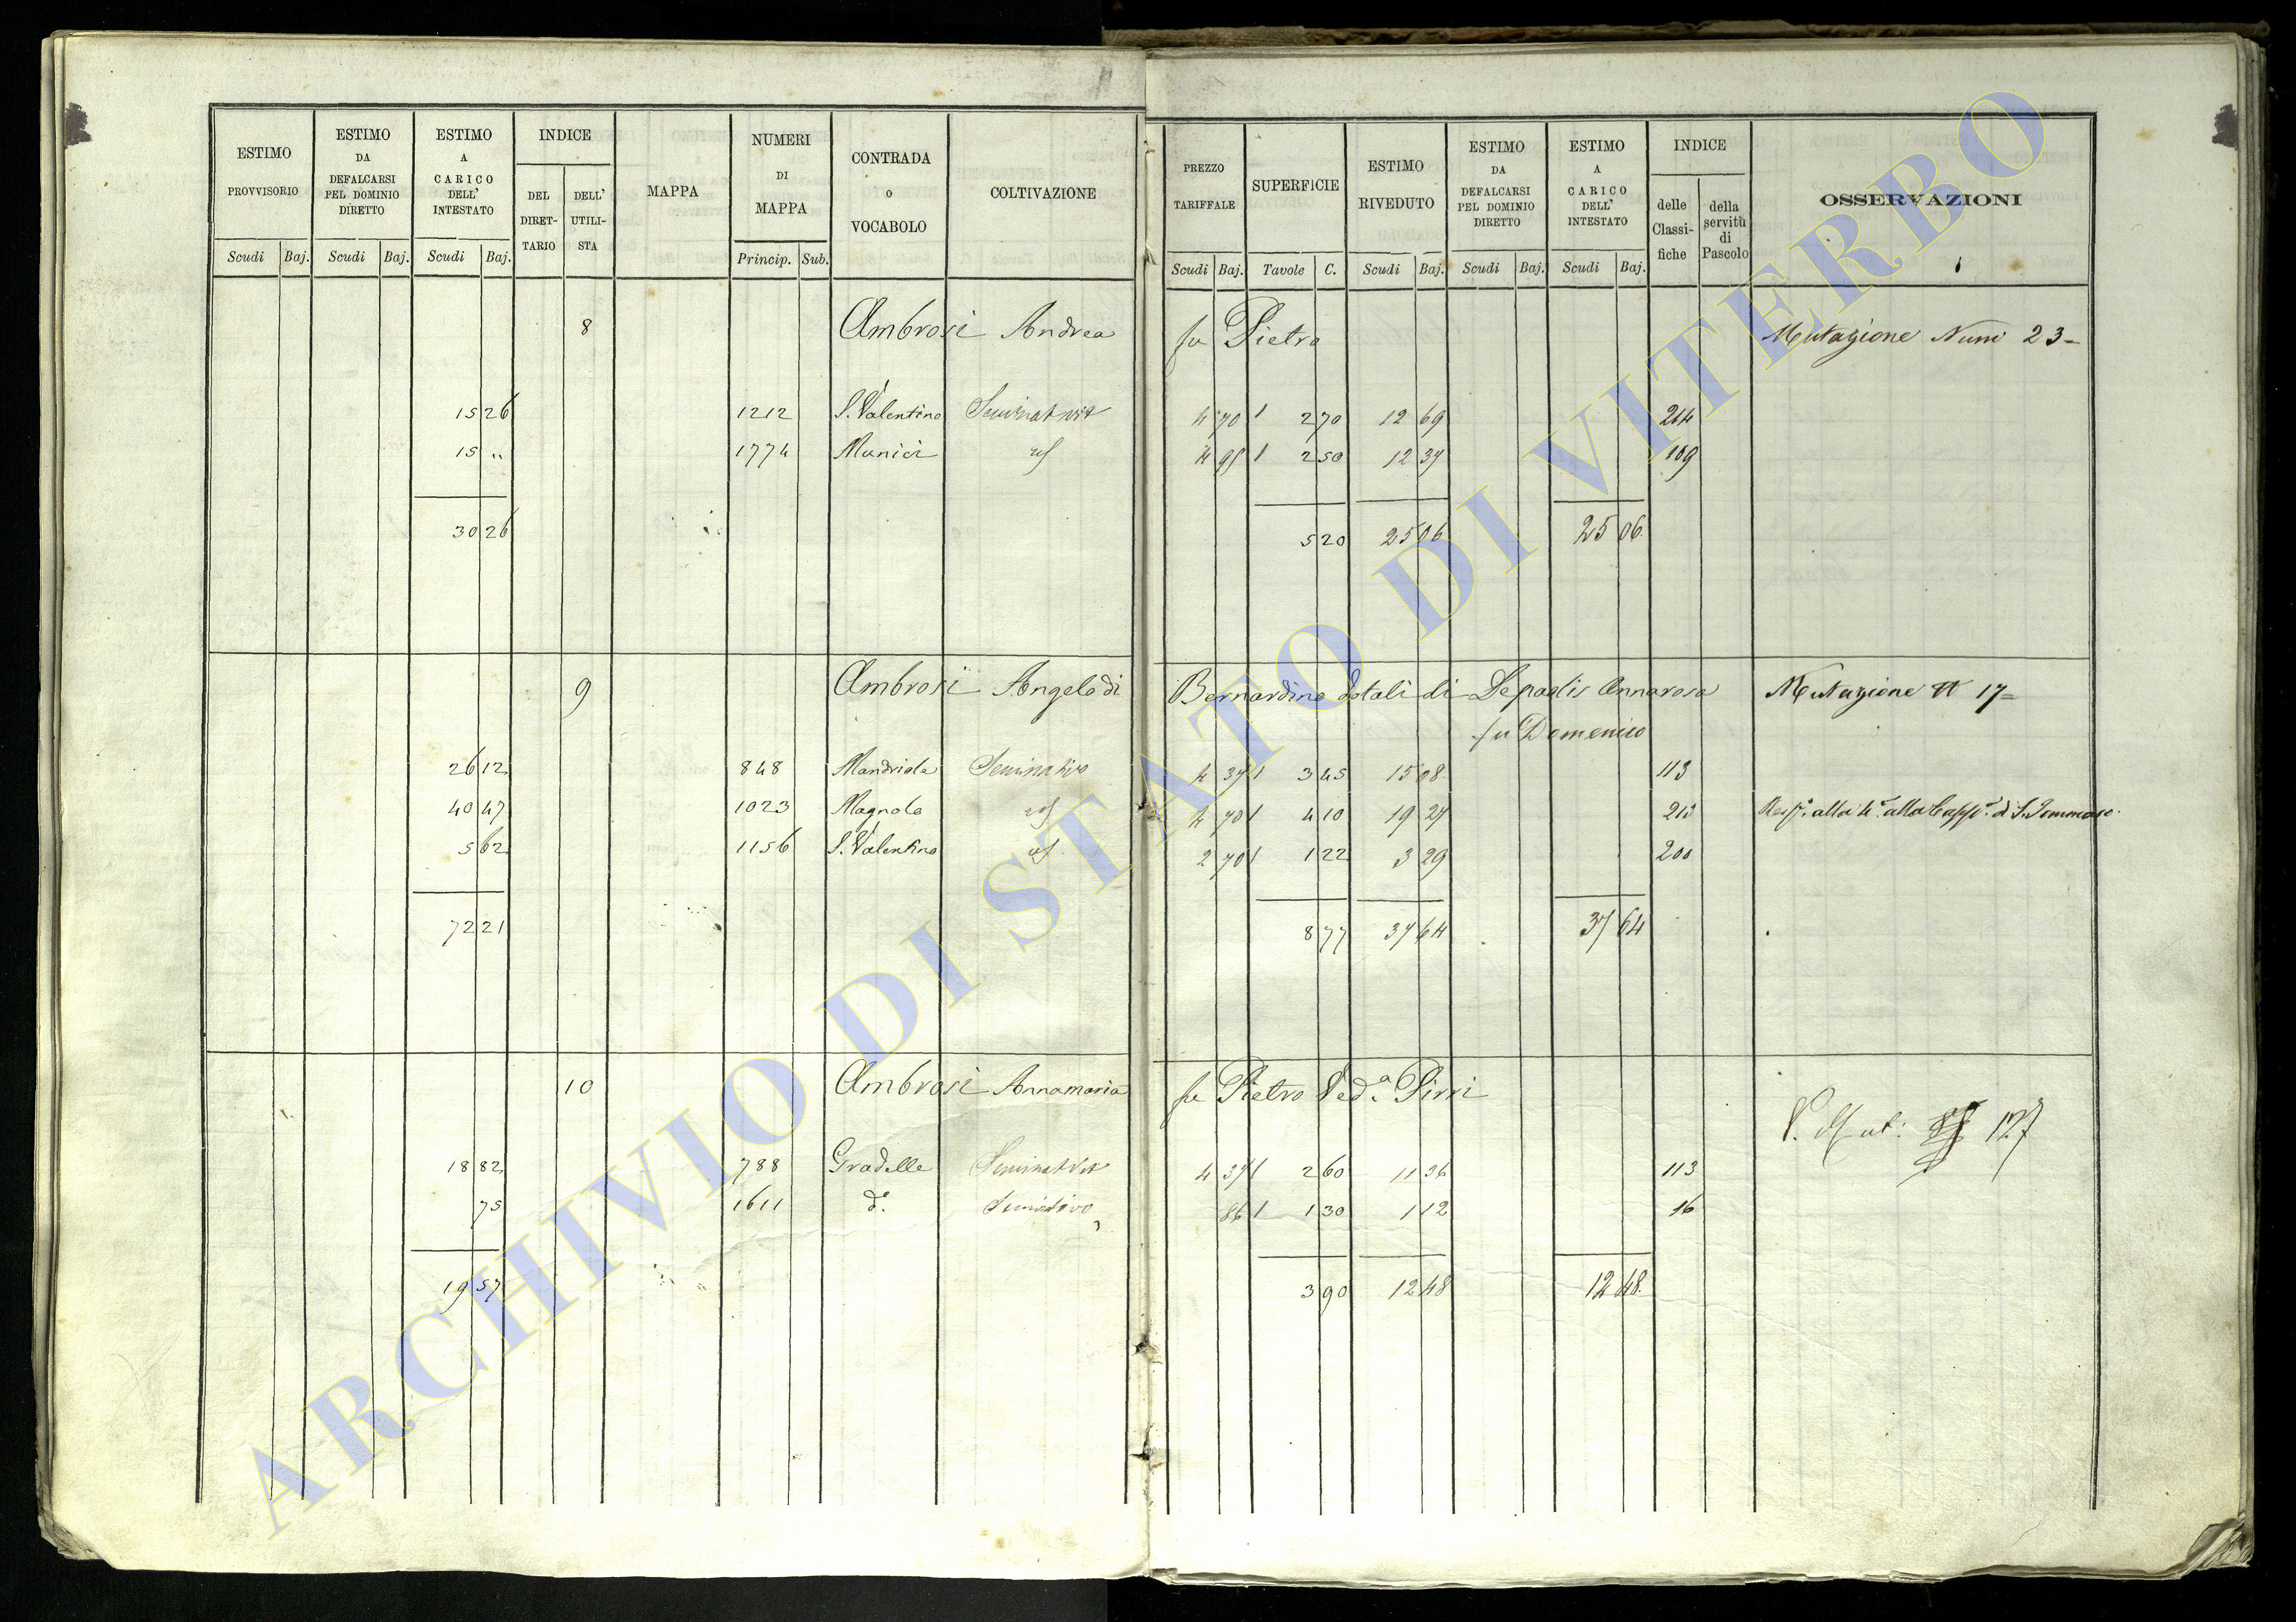 ESTIMO PROVVISORIO Scudi Baj.
ESTIMO DA DEFALCARSI PEL DOMINIO DIRETTO Scudi Baj.
ESTIMO A CARICO DELL' INTESTATO Scudi Baj.
INDICE DEL DIRET-TARIO DELL' UTILI-STA
MAPPA
NUMERI DI MAPPA Princip. Sub.
CONTRADA O VOCABOLO
COLTIVAZIONE
PREZZO TARIFFALE Scudi Baj.
SUPERFICIE Tavole C.
ESTIMO RIVEDUTO Scudi Baj.
ESTIMO DA DEFALCARSI PEL DOMINIO DIRETTO Scudi Baj.
ESTIMO A CARICO DELL' INTESTATO Scudi Baj.
INDICE delle Classi-fiche della servitù di Pascolo
OSSERVAZIONI
8 Ambrosi Andrea fu Pietro Mutazione Num 23
15 26 1212 S. Valentino Seminat vit 4 70 1 2 70 12 69 214
15 " 1774 4 95 1 2 50 12 37 109
30 26 5 20 25 06 25 06
9 Ambrosi Angelo di Bernardino dotali di Depaolis Annarosa Mutazione N 17
fu Domenico
26 12 848 Mandriole Seminativo 4 37 1 3 45 15 08 113
40 47 1023 Magnole 4 70 1 4 10 19 27 213 alla di S. Tommaso
5 62 1156 S. Valentino 2 70 1 1 22 3 29 200
72 21 8 77 37 64 37 64
10 Ambrosi Annamaria fu Pietro Ved.a Pirri
V. Mut: 127
18 82 788 Gradelle Seminat Vit 4 37 1 2 60 11 36 113
75 1611 d.o Seminativo 86 1 1 30 1 12 16
19 57 3 90 12 48 12 48
ARCHIVIO DI STATO DI VITERBO